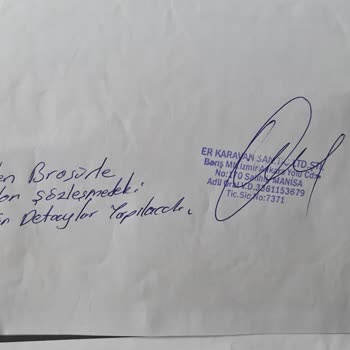 Broşürle
Sözleşmedeki
Detaylar Yapılacak.
ER KARAVAN SAN. LTD.ŞTİ.
Barış Mh. İzmir Ankara Yolu Cd.
Salihli MANİSA
V.D.3361153679
Tic.Sic.No:7371